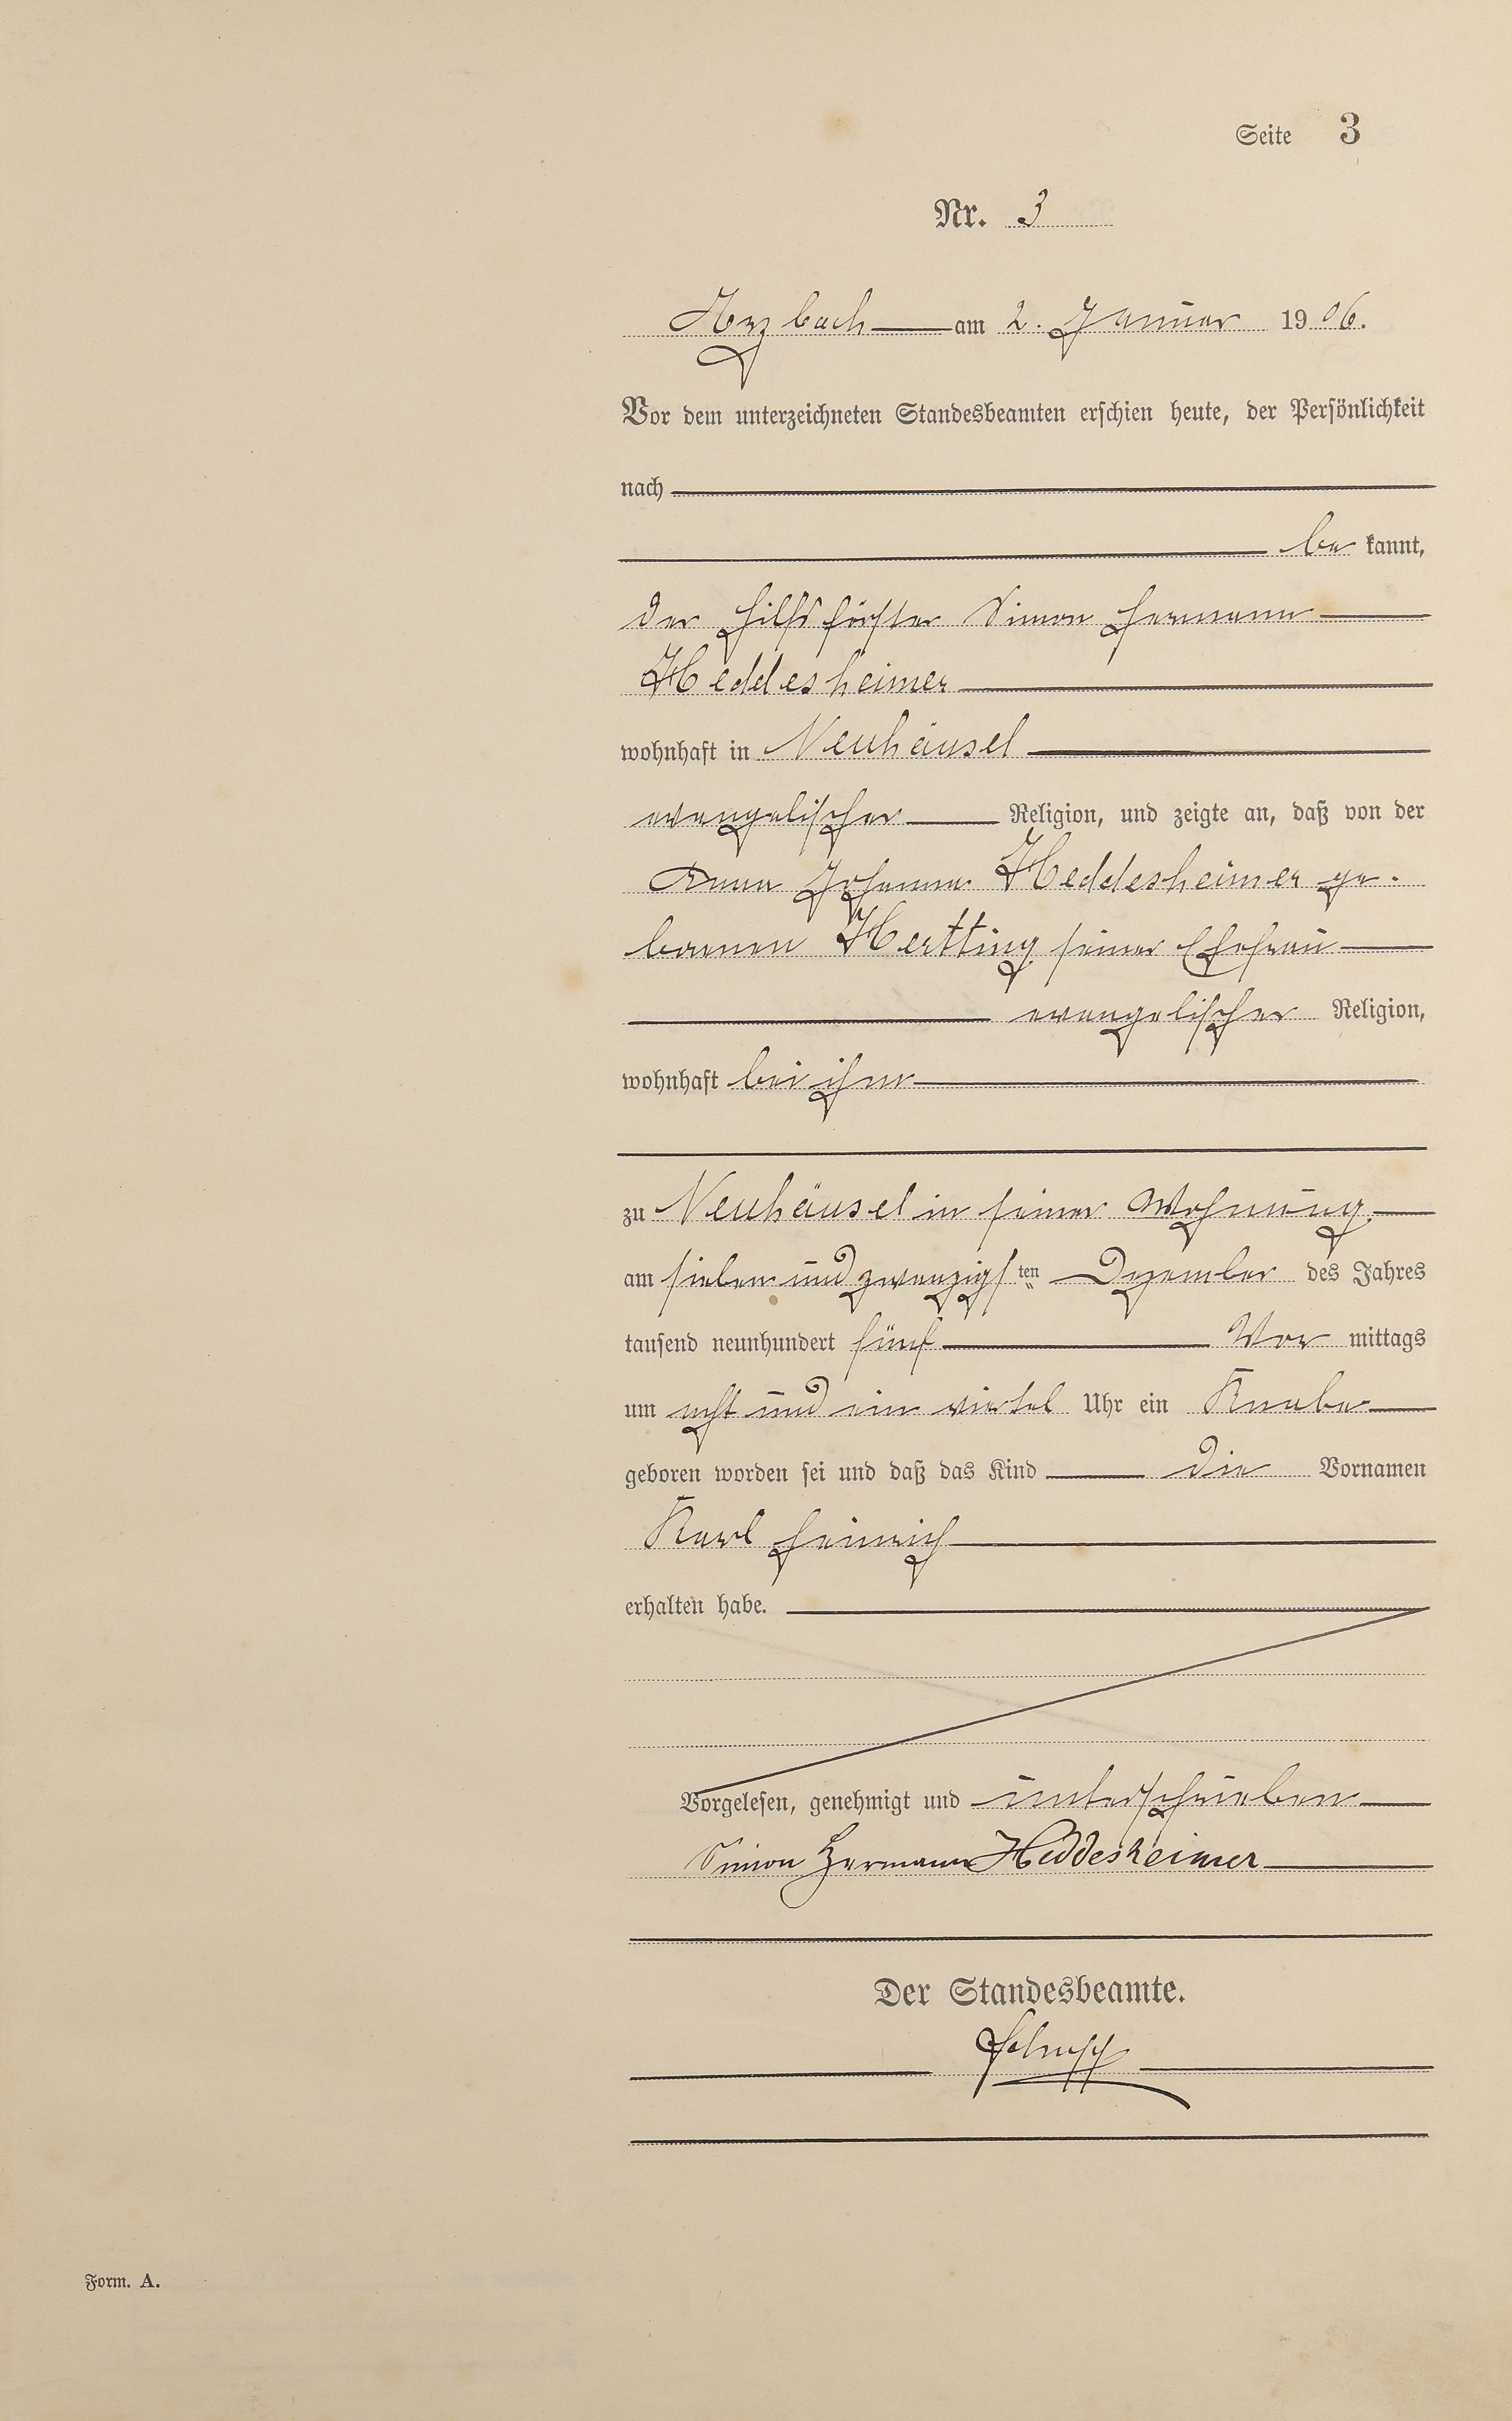 Seite 3
Nr. 3
Arzbach am 2. Januar 1906.
Vor dem unterzeichneten Standesbeamten erschien heute, der Persönlichkeit
nach
be kannt,
der Hilfsförster Simon Hermann
Heddesheimer
wohnhaft in Neuhäusel
evangelischer Religion, und zeigte an, daß von der
Anna Johanna Heddesheimer ge-
borenen Hertting seiner Ehefrau
evangelischer Religion,
wohnhaft bei ihm
zu Neuhäusel in seiner Wohnung
am sieben und zwanzigsten Dezember des Jahres
tausend neunhundert fünf Vor mittags
um acht und ein viertel Uhr ein Knabe
geboren worden sei und daß das Kind die Vornamen
Karl Heinrich
erhalten habe.
Vorgelesen, genehmigt und unterschrieben
Simon Hermann Heddesheimer
Der Standesbeamte.
Form. A.